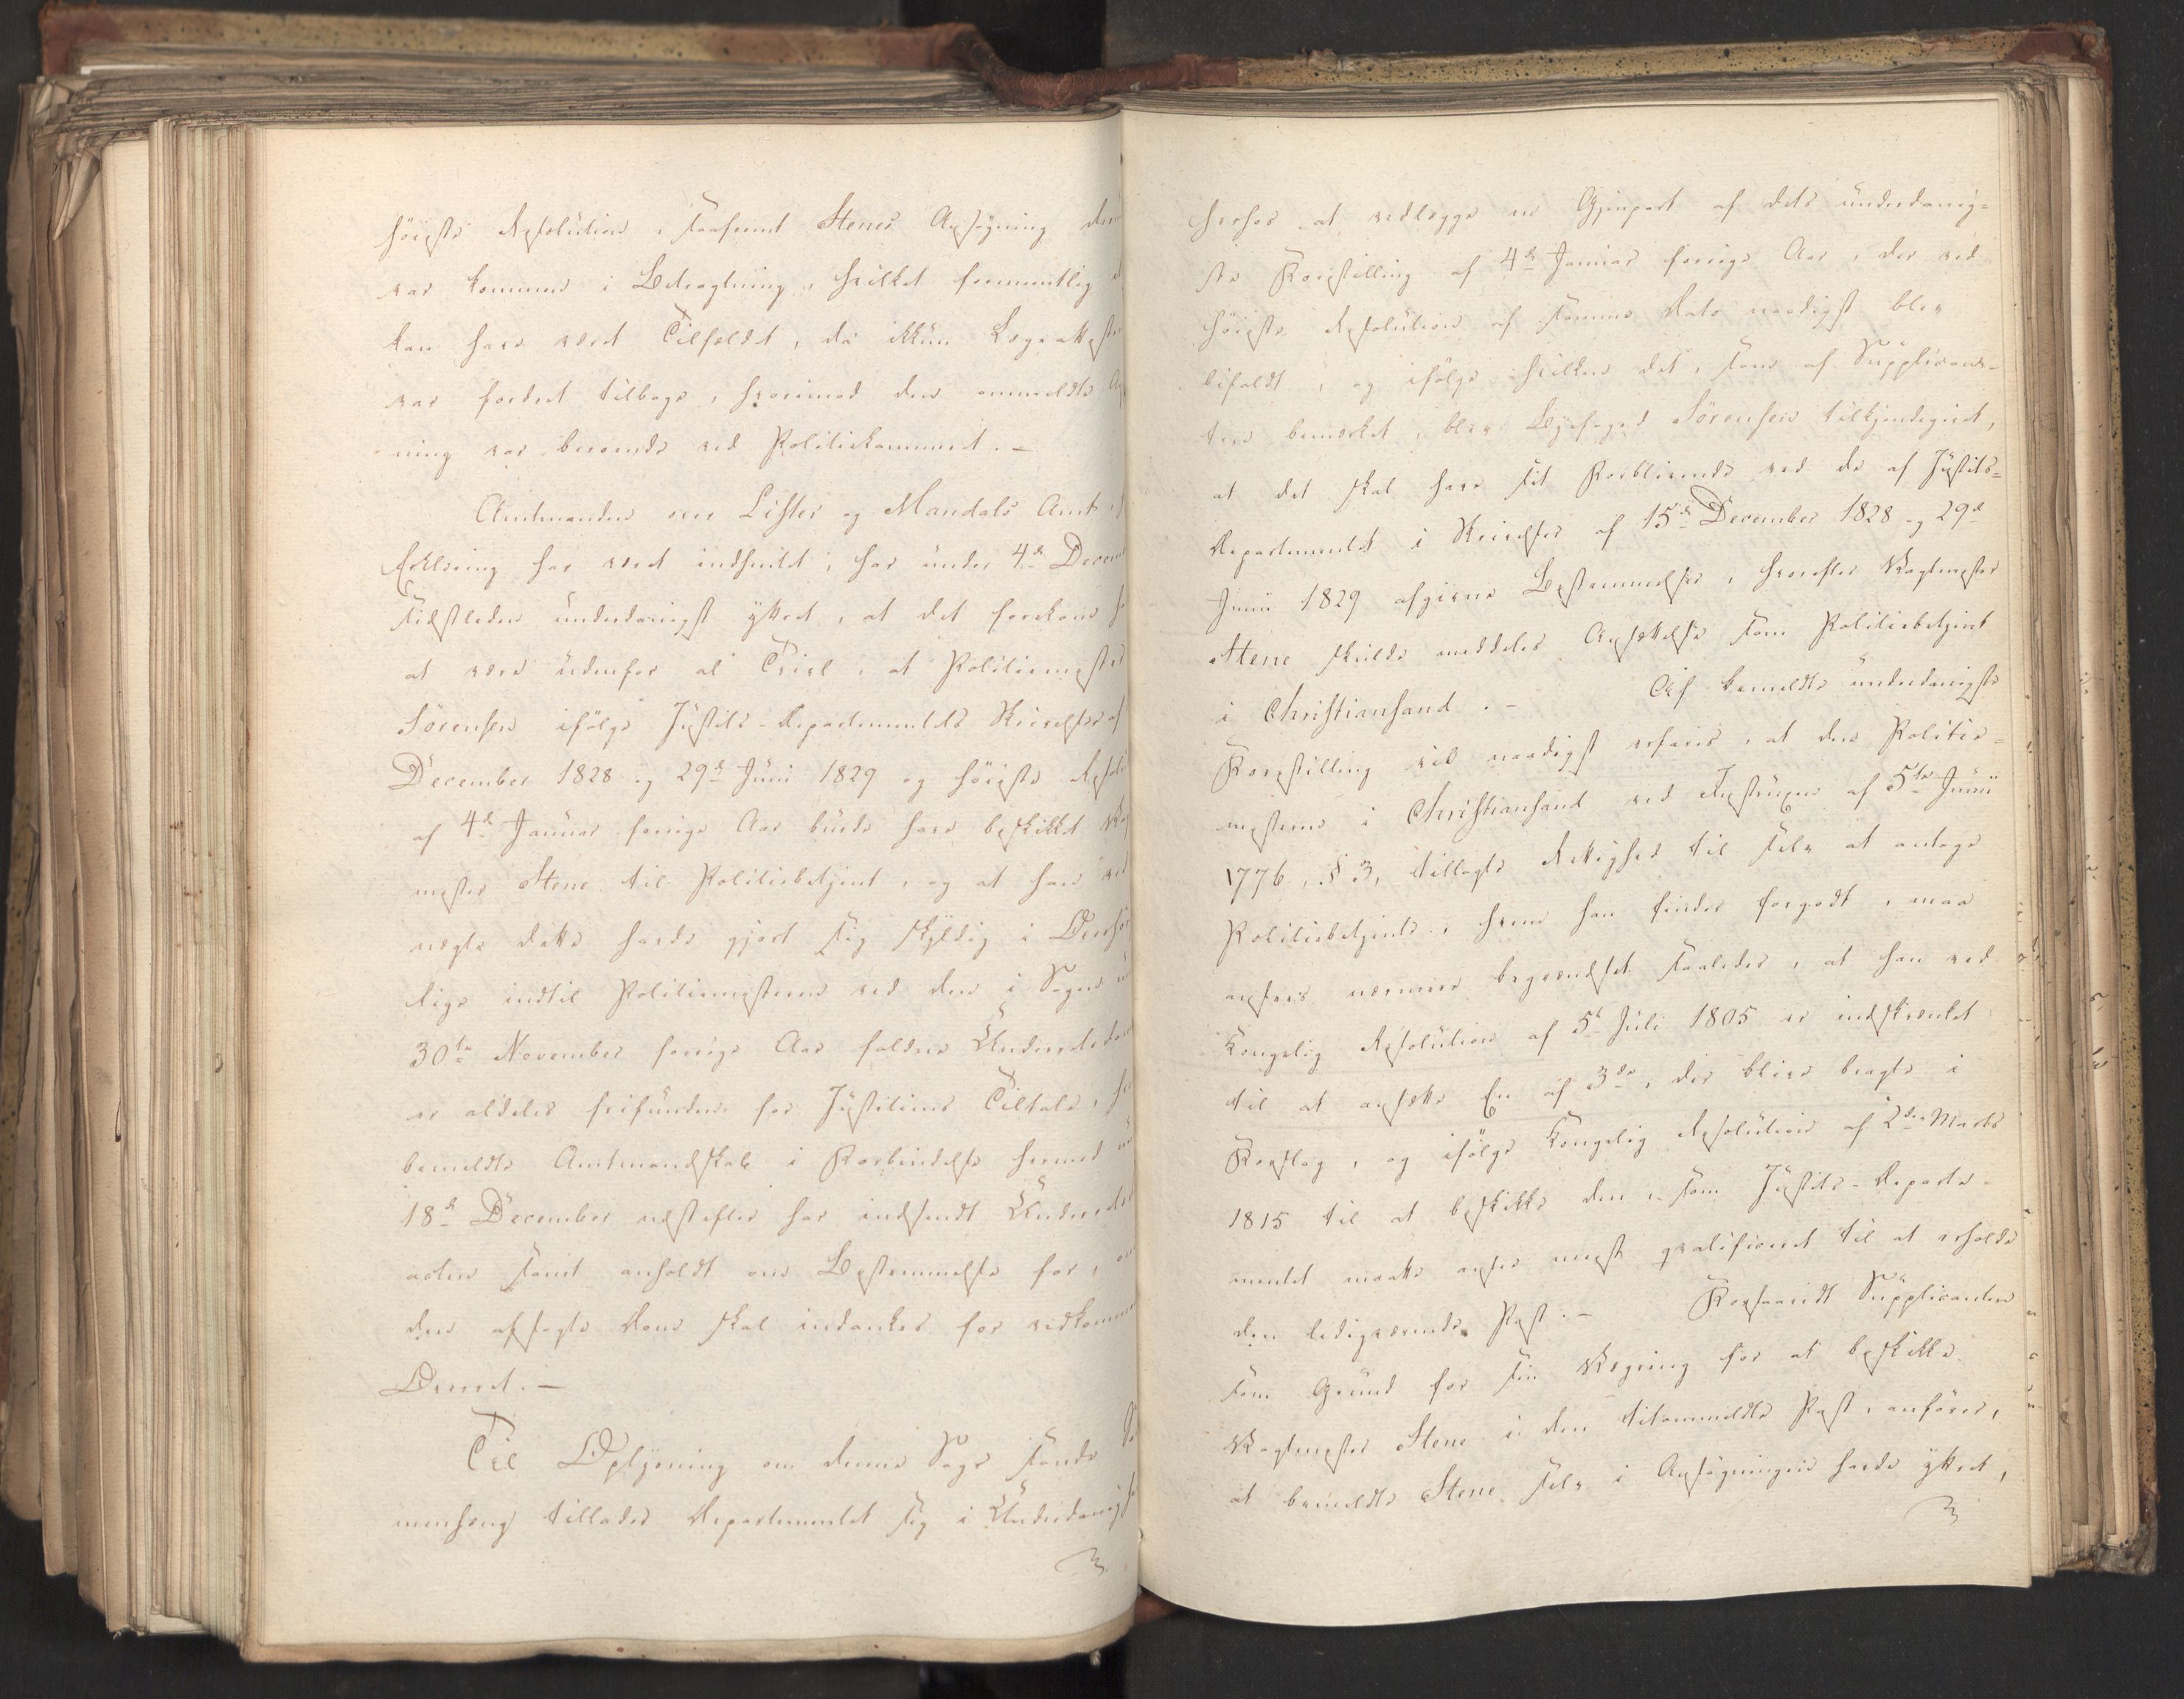 høieste Resolution, saafremt Stenes Ansøgning den
var kommen i Betragtning, hvilket formentlig
kan have været Tilfældet, da ikkun Lægeattesten
var fordret tilbage, hvorimod den anmeldte
ning var beroende ved Politiekammeret. –
Amtmanden over Lister og Mandals Amt,
Erklæring har været indhentet, har under 4de Decem
sidstleden underdanigst yttret, at det forekom
at være udenfor al Tvivl, at Politiemester
Sørensen ifølge Justits-Departementets Skrivelser af
December 1828 og 29de Juni 1829 og høieste Resolu
af 4de Januar forrige Aar burde have beskikket Vagt
mester Stene til Politiebetjent, og at han ved
nægte dette havde gjort sig skyldig i
lige indtil Politiemesteren ved den i Sagen
30te November forrige Aar faldne Underrets dom
er aldeles frifunden for Justitiens Tiltale,
bemeldte Amtmandskab i Forbindelse hermed
18de December næstefter har indsendt Underrets
acten samt anholdt om Bestemmelse for, om
den afsagte Dom skal indankes for vedkommende
Overret. –
Til Oplysning om denne Sags sande
menhæng tillader Departementet sig i Underdanighed
herhos at vedlægge en Gjenpart af dets underdanig-
ste Forestilling af 4de Januar forrige Aar, der ved
høieste Resolution af samme Dato naadigst blev
bifaldt, og ifølge hvilken det, som af Supplican-
ten bemærket, blev Byefoged Sørensen tilkjendegivet,
at det skal have sit Forblivende ved de af Justits-
Departementet i Skrivelser af 15de December 1828 og 29de
Junii 1829 afgivne Bestemmelser, hvorefter Vagtmester
Stene skulde meddeles Ansættelse som Politiebetjent
i Christiansand. – Af bemeldte underdanigste
Forestilling vil naadigst erfares, at den Politie-
mesteren i Christiansand ved Instruxen af 5te Junii
1776, § 3, tillagte Rettighed til selv at antage
Politiebetjente, hvem han finder forgodt, maa
ansees nærmere begrændset saaledes, at han ved
Kongelig Resolution af 5te Juli 1805 er indskrænket
til at ansætte En af 3de, der blive bragte i
Forslag, og ifølge Kongelig Resolution af 2den Marts
1815 til at beskikke den, som Justits-Departe-
mentet maatte ansee meest qvalificeret til at erholde
den ledigværende Post. – Forsaavidt Supplicanten
som Grund for sin Vægring for at beskikke
Vagtmester Stene i den ditommeldte Post, anfører,
at bemeldte Stene selv i Ansøgningen havde yttret,